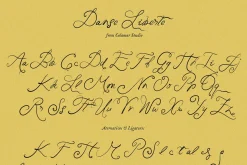 Danse Liberte
from Edsmar Studio
Aa Bb Cc Dd Ee Ff Gg Hh Ii Jj
Kk Ll Mm Nn Oo Pp Qq
Rr Ss Tt Uu Vv Ww Xx Yy Zz
Alternatives & Ligatures